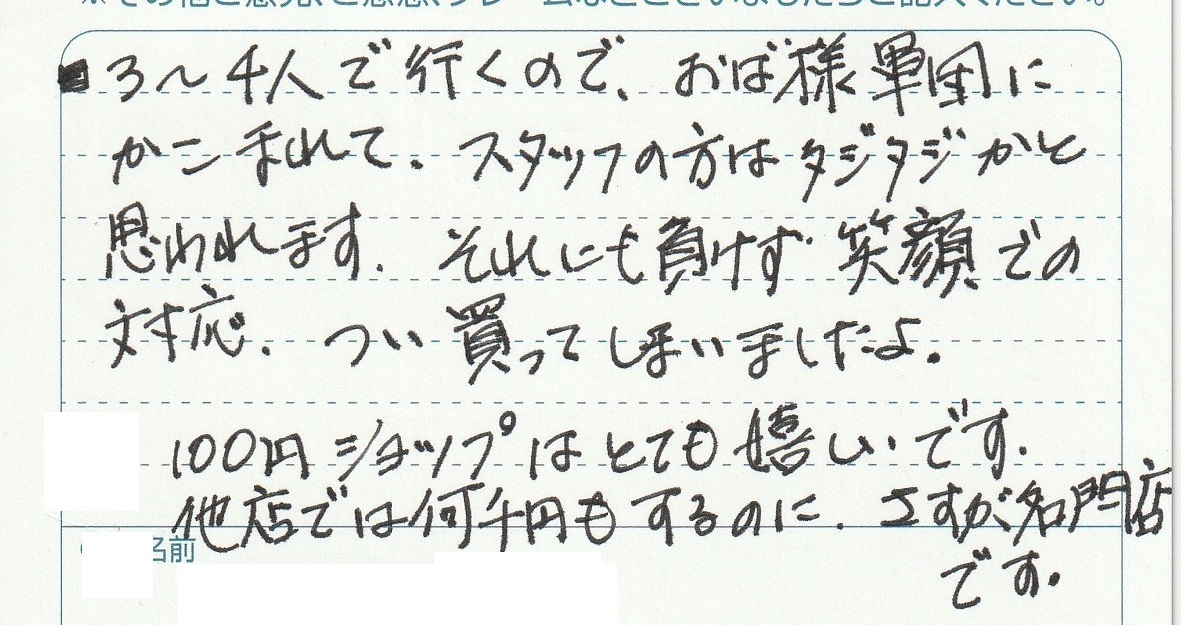 ※その他ご意見、ご感想、クレームなどございましたらご記入ください。
3〜4人で行くので、おば様軍団に
かこまれて、スタッフの方はタジタジかと
思われます。それにも負けず笑顔での
対応。つい買ってしまいましたよ。
100円ショップはとても嬉しいです。
他店では何千円もするのに。さすが名門店
です。
名前